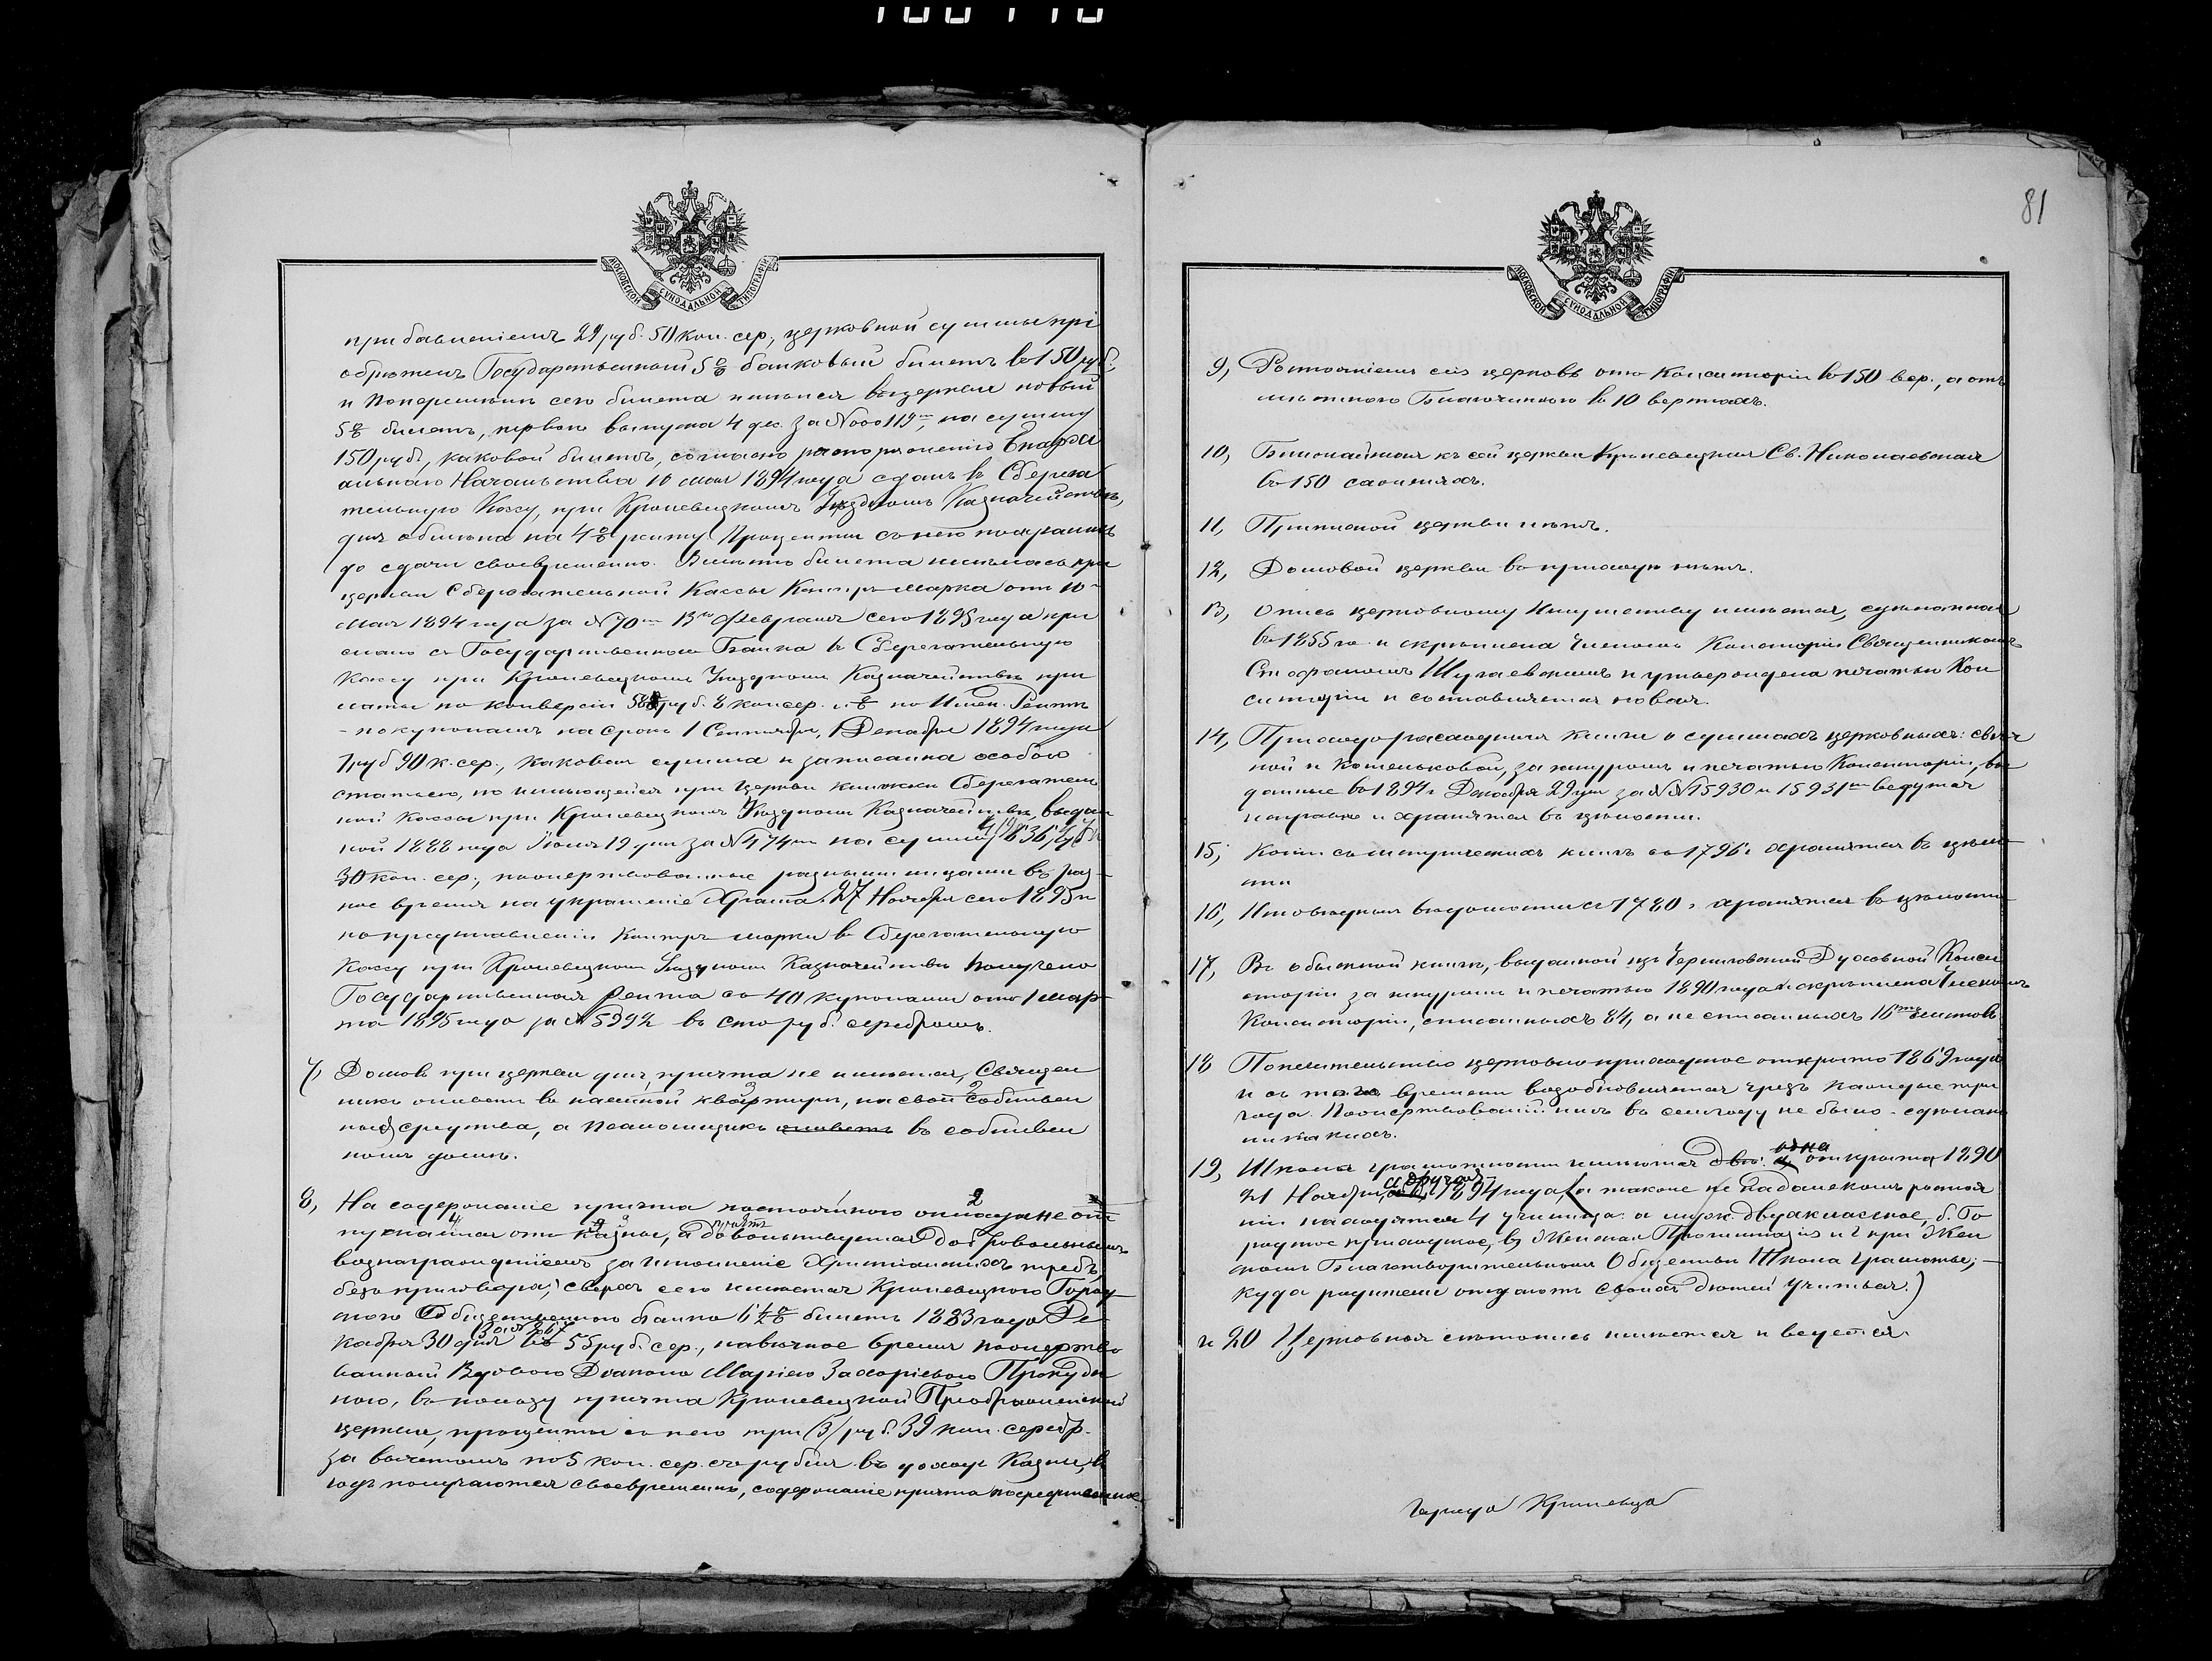 81
МОСКОВСКОЙ СУНОДАЛЬНОЙ ТИПОГРАФІИ
прибавленіемъ 29 руб. 50 коп. сер., церковной суммы прі
обрѣтенъ Государственный 5% банковый билетъ въ 150 руб.,
и сего билета новый
5% билетъ, перваго выпуска за № 000119, на сумму
150 руб., каковой билетъ, согласно распоряженію Епархі
альнаго Начальства 10 мая 1894 года сданъ въ Сберега
тельную Кассу, при Кролевецкомъ Уѣздномъ Казначействѣ,
для обмѣна на 4% ренту. Проценты съ него получались
до сдачи своевременно. Вмѣсто билета имѣлась при
церкви Сберегательной Кассы Контръ-марка отъ 10
Мая 1894 года за № 70 13го Февраля сего 1895 года при
слано съ Государственнаго Банка въ Сберегательную
Кассу при Кролевецкомъ Уѣздномъ Казначействѣ при
латы по конверсіи руб. 8 коп. сер. и % по Имен. Рентѣ
по купонамъ на сроки 1 Сентября, 1 Декабря 1894 года
1 руб 90 к. сер., каковая сумма и записана особою
статьею, по имѣющейся при церкви книжкѣ Сберегатель
ной Кассы при Кролевецкомъ Уѣздномъ Казначействѣ, выдан
ной 1888 года Іюня 19 дня за № 474 на сумму
30 коп. сер., пожертвованные разными лицами въ раз
ное время на украшеніе Храма. 27 Ноября сего 1895 г.
по представленіи Контръ-марки въ Сберегательную
Кассу при Кролевецкомъ Уѣздномъ Казначействѣ получено
Государственная рента съ 40 купонами отъ 1 мар
та 1895 года за № 5992 въ сто руб. серебромъ.
7, Домовъ при церкви для причта не имѣется, Священ
никъ живетъ въ наемной квартирѣ, на свои собствен
ныя средства, а Псаломщикъ живетъ въ собствен
номъ домѣ.
8, На содержаніе причта постояннаго оклада не от
пускается отъ казны, а довольствуется добровольнымъ
вознагражденіемъ за исполненіе Христіанскихъ требъ,
безъ приговора; сверхъ сего имѣется Кролевецкаго Город
скаго Общественнаго банка 6½% билетъ 1883 года Де
кабря 30 дня за № 267 въ 55 руб. сер., на вѣчное время пожертво
ванный Вдовою Діакона Маріею Захаріевою Прокуди
ною, въ пользу причта Кролевецкой Преображенской
церкви, проценты съ него три (3) руб. 39 коп. серебр.
за вычетомъ по 5 коп. сер. съ рубля въ доходъ Казны, въ
годъ получаются своевременно, содержаніе причта посредственное.
МОСКОВСКОЙ СУНОДАЛЬНОЙ ТИПОГРАФІИ
9, Разстояніемъ сія церковь отъ Консисторіи въ 150 вер., а отъ
мѣстнаго Благочиннаго въ 10 верстахъ.
10, Ближайшая къ сей церкви Кролевецкая Св. Николаевская
въ 150 саженяхъ.
11, Приписной церкви нѣтъ.
12, Домовой церкви въ приходѣ нѣтъ.
13, Опись церковному Имуществу имѣется, сдѣланная
въ 1855 го. и скрѣплена Членомъ Консисторіи Священникомъ
Стефаномъ и утверждена печатью Кон
систоріи и составляется новая.
14, Приходо-расходныя книги о суммахъ церковныхъ: свѣч
ной и Кошельковой, за шнуромъ и печатью Консисторіи, вы
данные въ 1894 г. Декабря 29 дня за №№ 15930 и 15931 ведутся
исправно и хранятся въ цѣлости.
15, Копіи съ метрическихъ книгъ съ 1796 г. хранятся въ цѣло
сти
16, Исповѣдныя вѣдомости съ 1780 г. хранятся въ цѣлости
17, Въ обыскной книгѣ, выданной изъ Черниговской Духовной Конси
сторіи за шнуромъ и печатью 1890 года и скрѣплена Членомъ
Консисторіи, списанныхъ 84, а не списанныхъ 16 листовъ
18 Попечительство церковно-приходское открыто 1869 года
и съ того времени возобновляется чрезъ каждые три
года. Пожертвованій имъ въ семъ году не было сдѣлано
никакихъ.
19, Школъ грамотности имѣется двѣ: одна открыта 1890
21 Ноября, а другая 1894 года, а также не въ далекомъ разстоя
ніи находятся 4 училища: а муж. двуклассное, б. Го
родское приходское, в, Женская Прогимназія и г при Жен
скомъ Благотворительномъ Обществѣ Школа грамоты;
куда родители отдаютъ своихъ дѣтей учиться.)
и 20 Церковная лѣтопись имѣется и ведется.
Города Кролевца